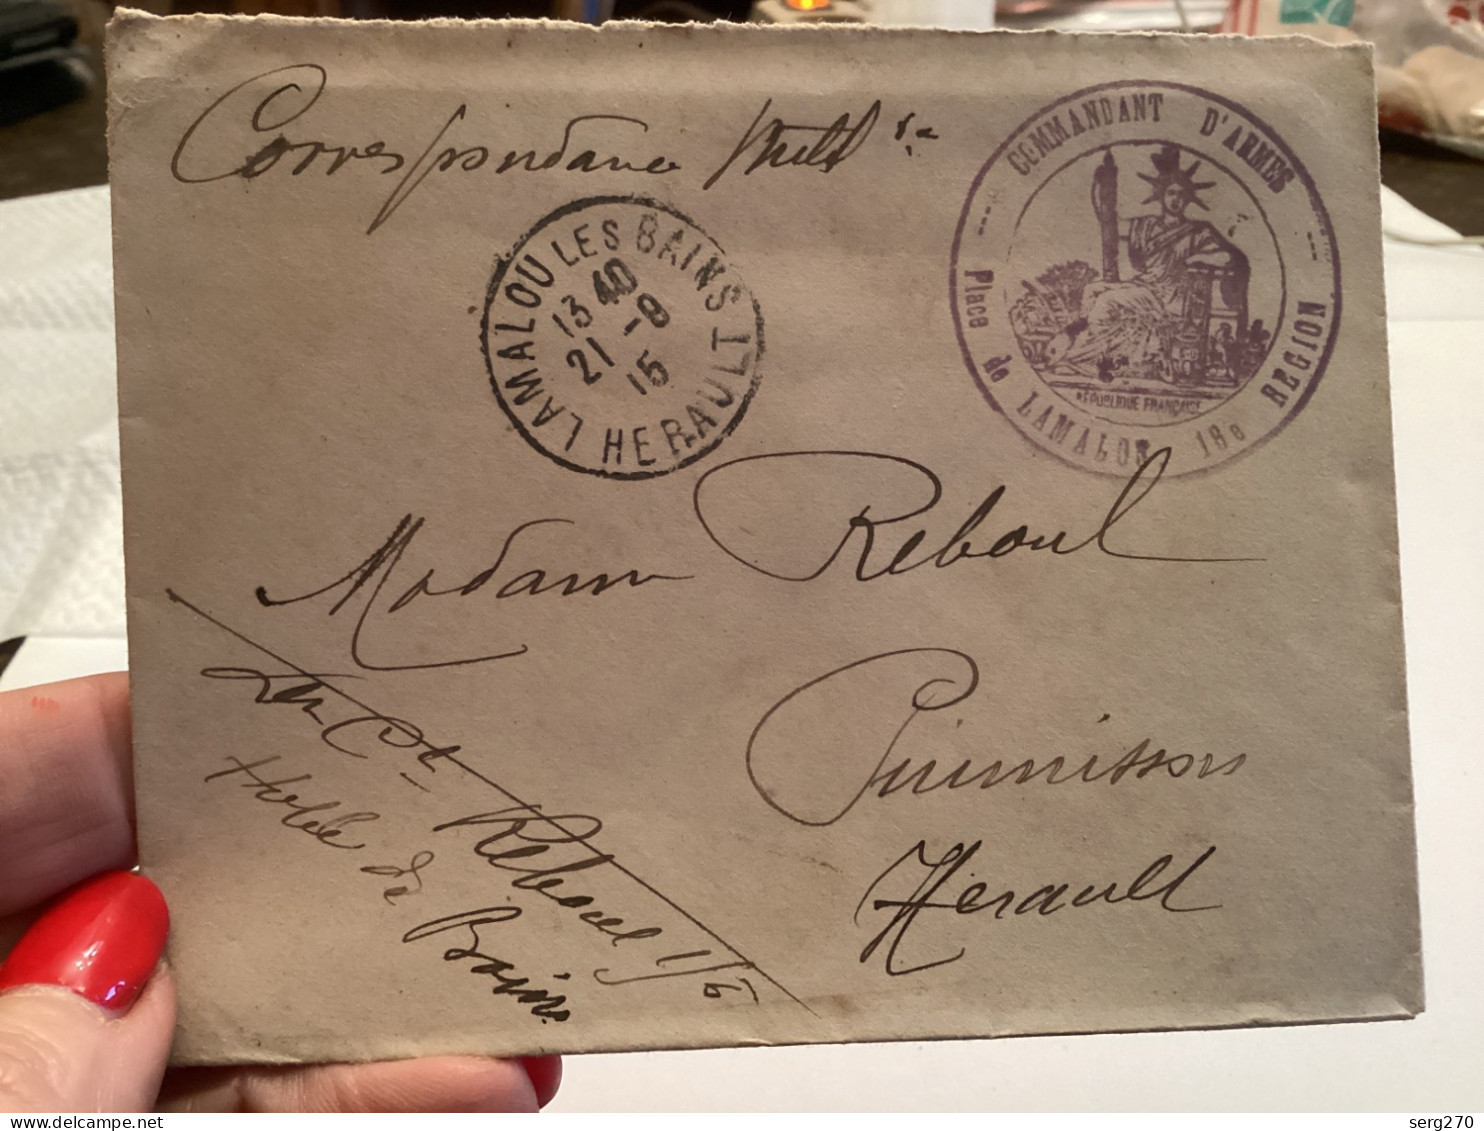 Correspondance Milit re
COMMANDANT D'ARMES
Place de LAMALOU 16e REGION
RÉPUBLIQUE FRANÇAISE
LAMALOU LES BAINS
13 40
21 - 9
15
HERAULT
Madame Reboul
Puimisson
Herault
Reboul 1/5
Hotel de Bains
serg270